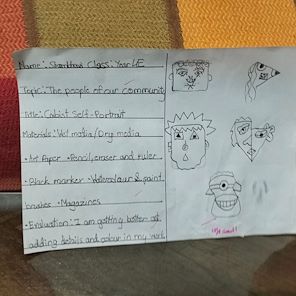 Name: Class: Year 4E
Topic: The people of our community
Title: Cubist Self-Portrait
Materials: Wet media/Dry media
• Art Paper • Pencil, eraser and ruler
• Black marker • Watercolour & paint
brushes • Magazines
• Evaluation: I am getting better at
adding details and colour in my work